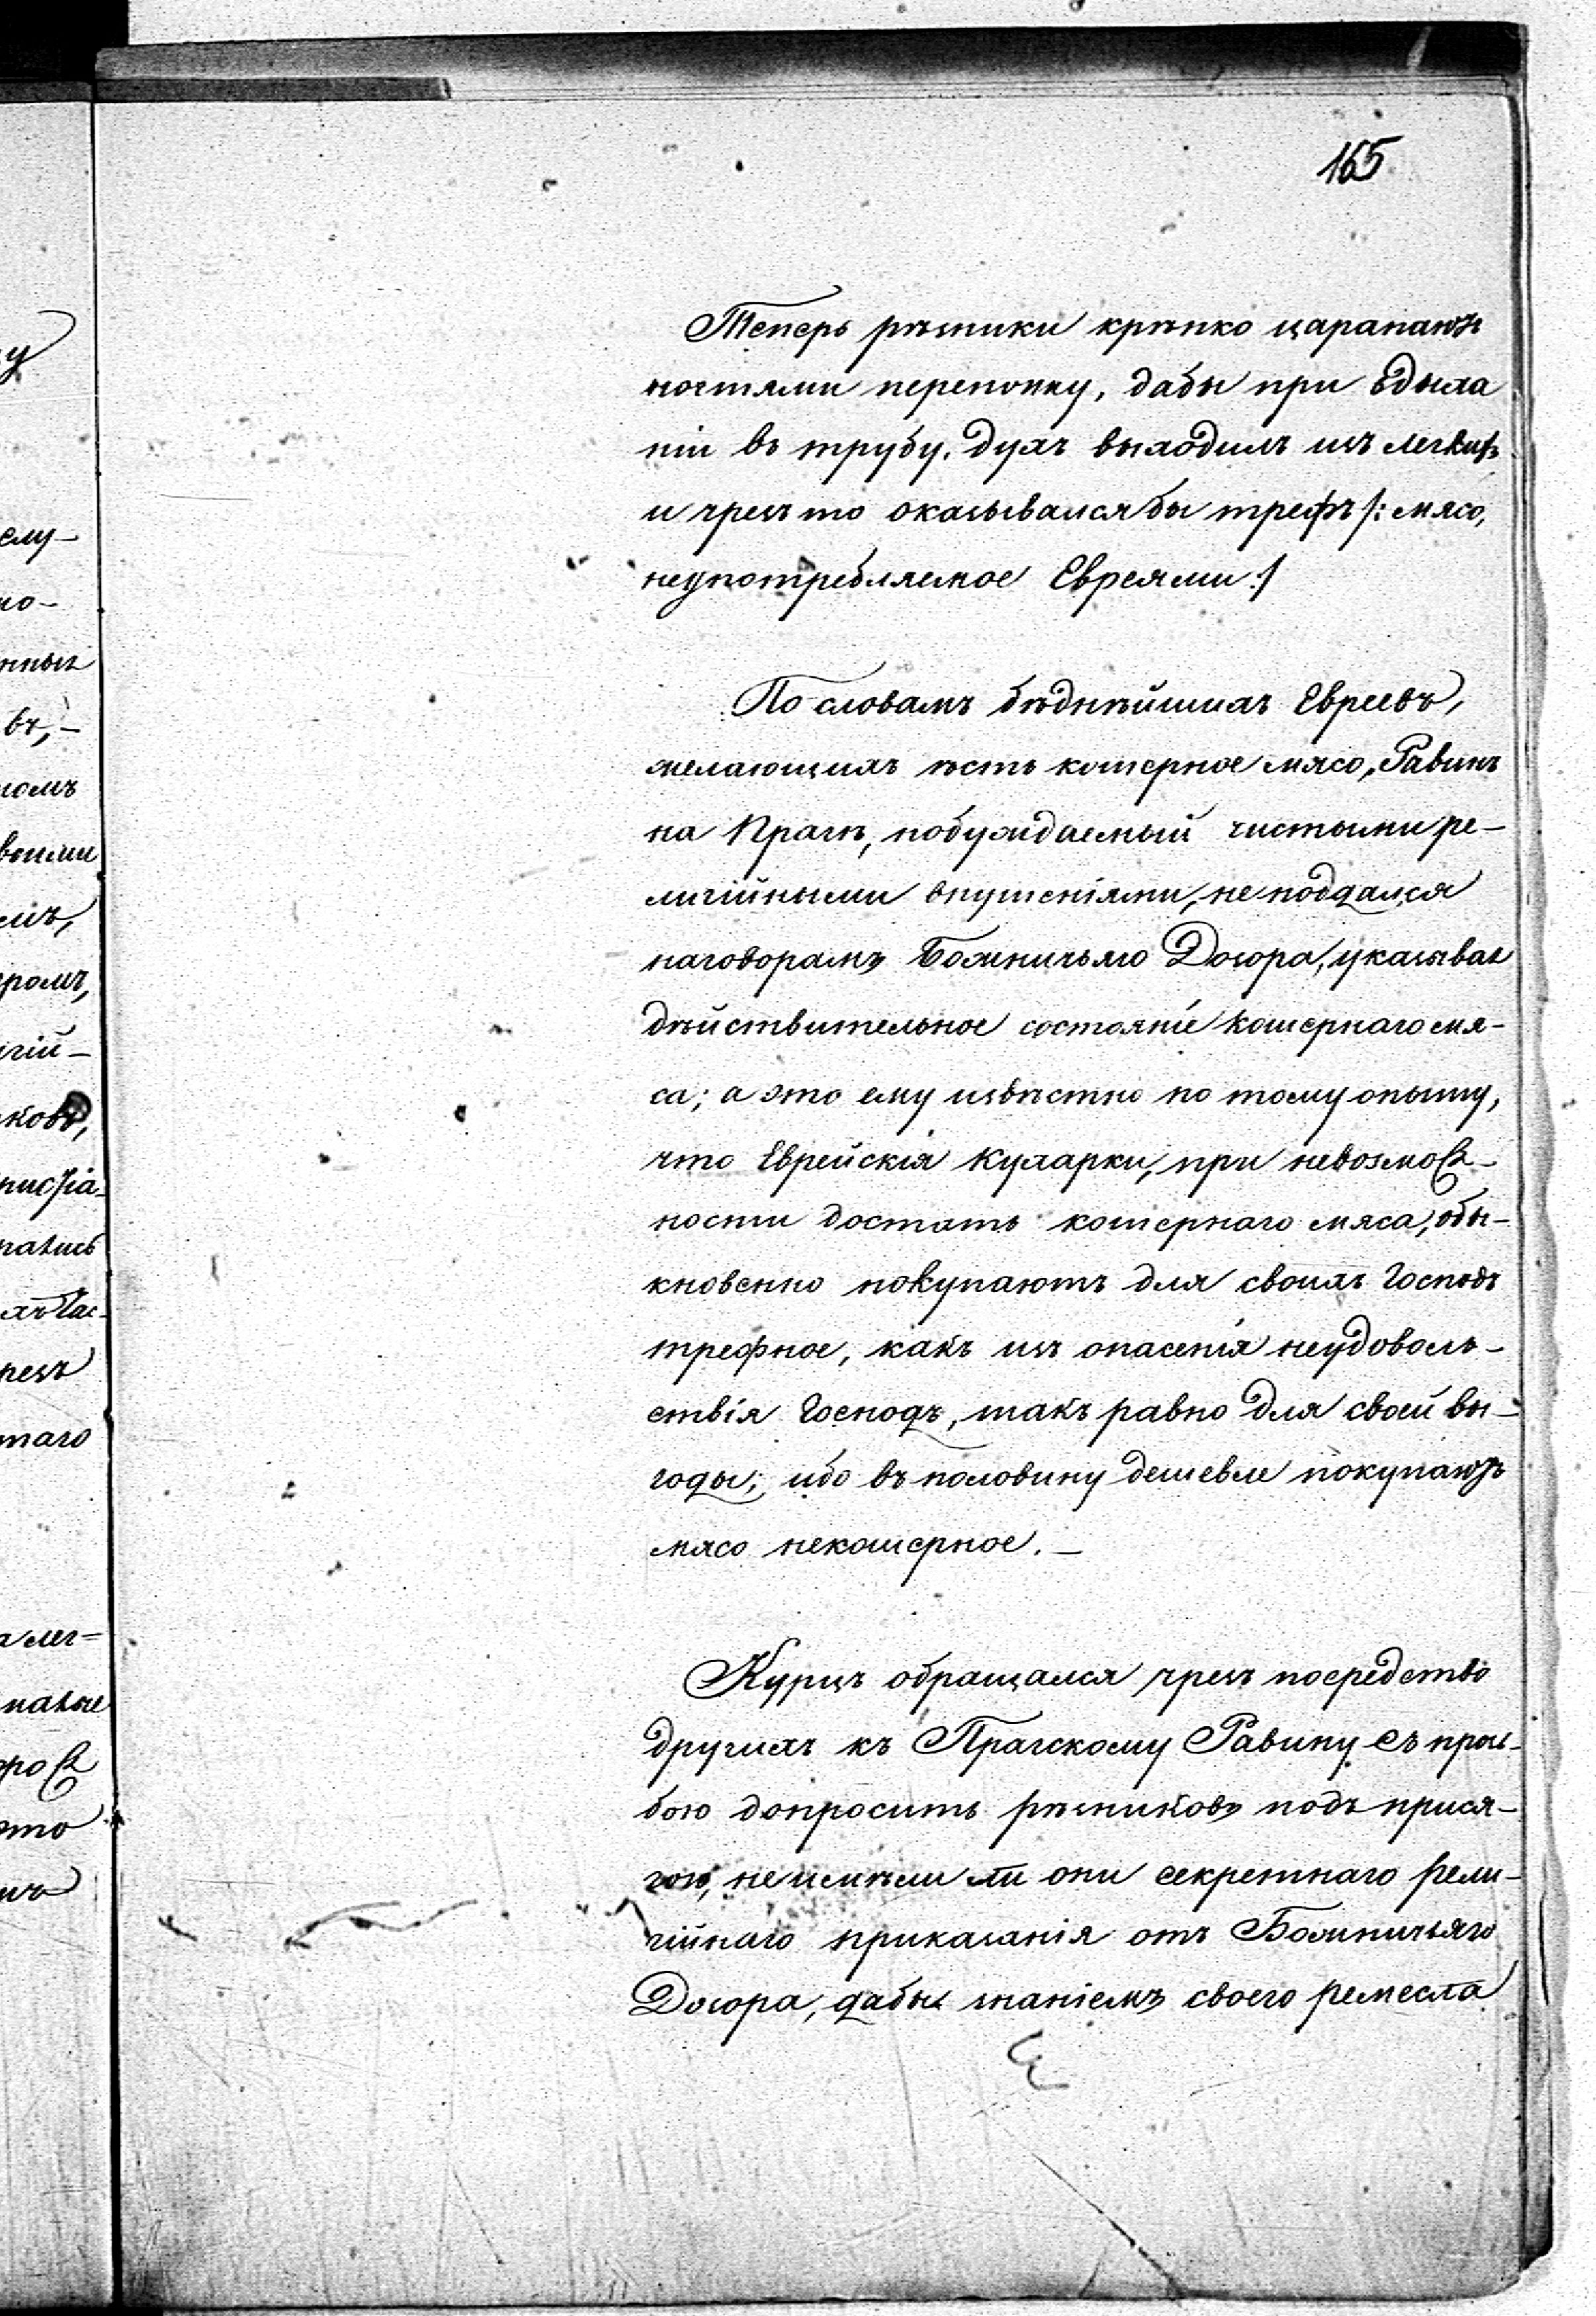 165
Теперь рѣзники крѣпко царапаютъ
ногтями перепонку, дабы при вдыха
ніи въ трубу, духъ выходилъ изъ легкихъ
и чрезъ то оказывался бы трефъ /: мясо,
неупотребляемое Евреями :/
По словамъ бѣднѣйшихъ Евреевъ,
желающихъ ѣсть кошерное мясо, Равинъ
на Прагѣ, побуждаемый чистыми ре-
лигійными внушеніями, не поддался
наговорамъ Божничьяго Дозора, указывая
дѣйствительное состояніе кошернаго мя-
са; а это ему извѣстно по тому опыту,
что Еврейскія кухарки, при невозмож-
ности достать кошернаго мяса, обы-
кновенно покупаютъ для своихъ Господъ
трефное, какъ изъ опасенія неудоволь-
ствія Господъ, такъ равно для своей вы-
годы; ибо въ половину дешевле покупаютъ
мясо некошерное. —
Курцъ обращался чрезъ посредство
другихъ къ Прагскому Равину съ прозь-
бою допросить рѣзниковъ подъ прися-
гою, не имѣли ли они секретнаго рели-
гійнаго приказанія отъ Божничьяго
Дозора, дабы знаніемъ своего ремесла
ему-
но-
нныя
въ,-
номъ
воими
ромъ,
гій-
ковъ,
резъ
таго
лег-
это